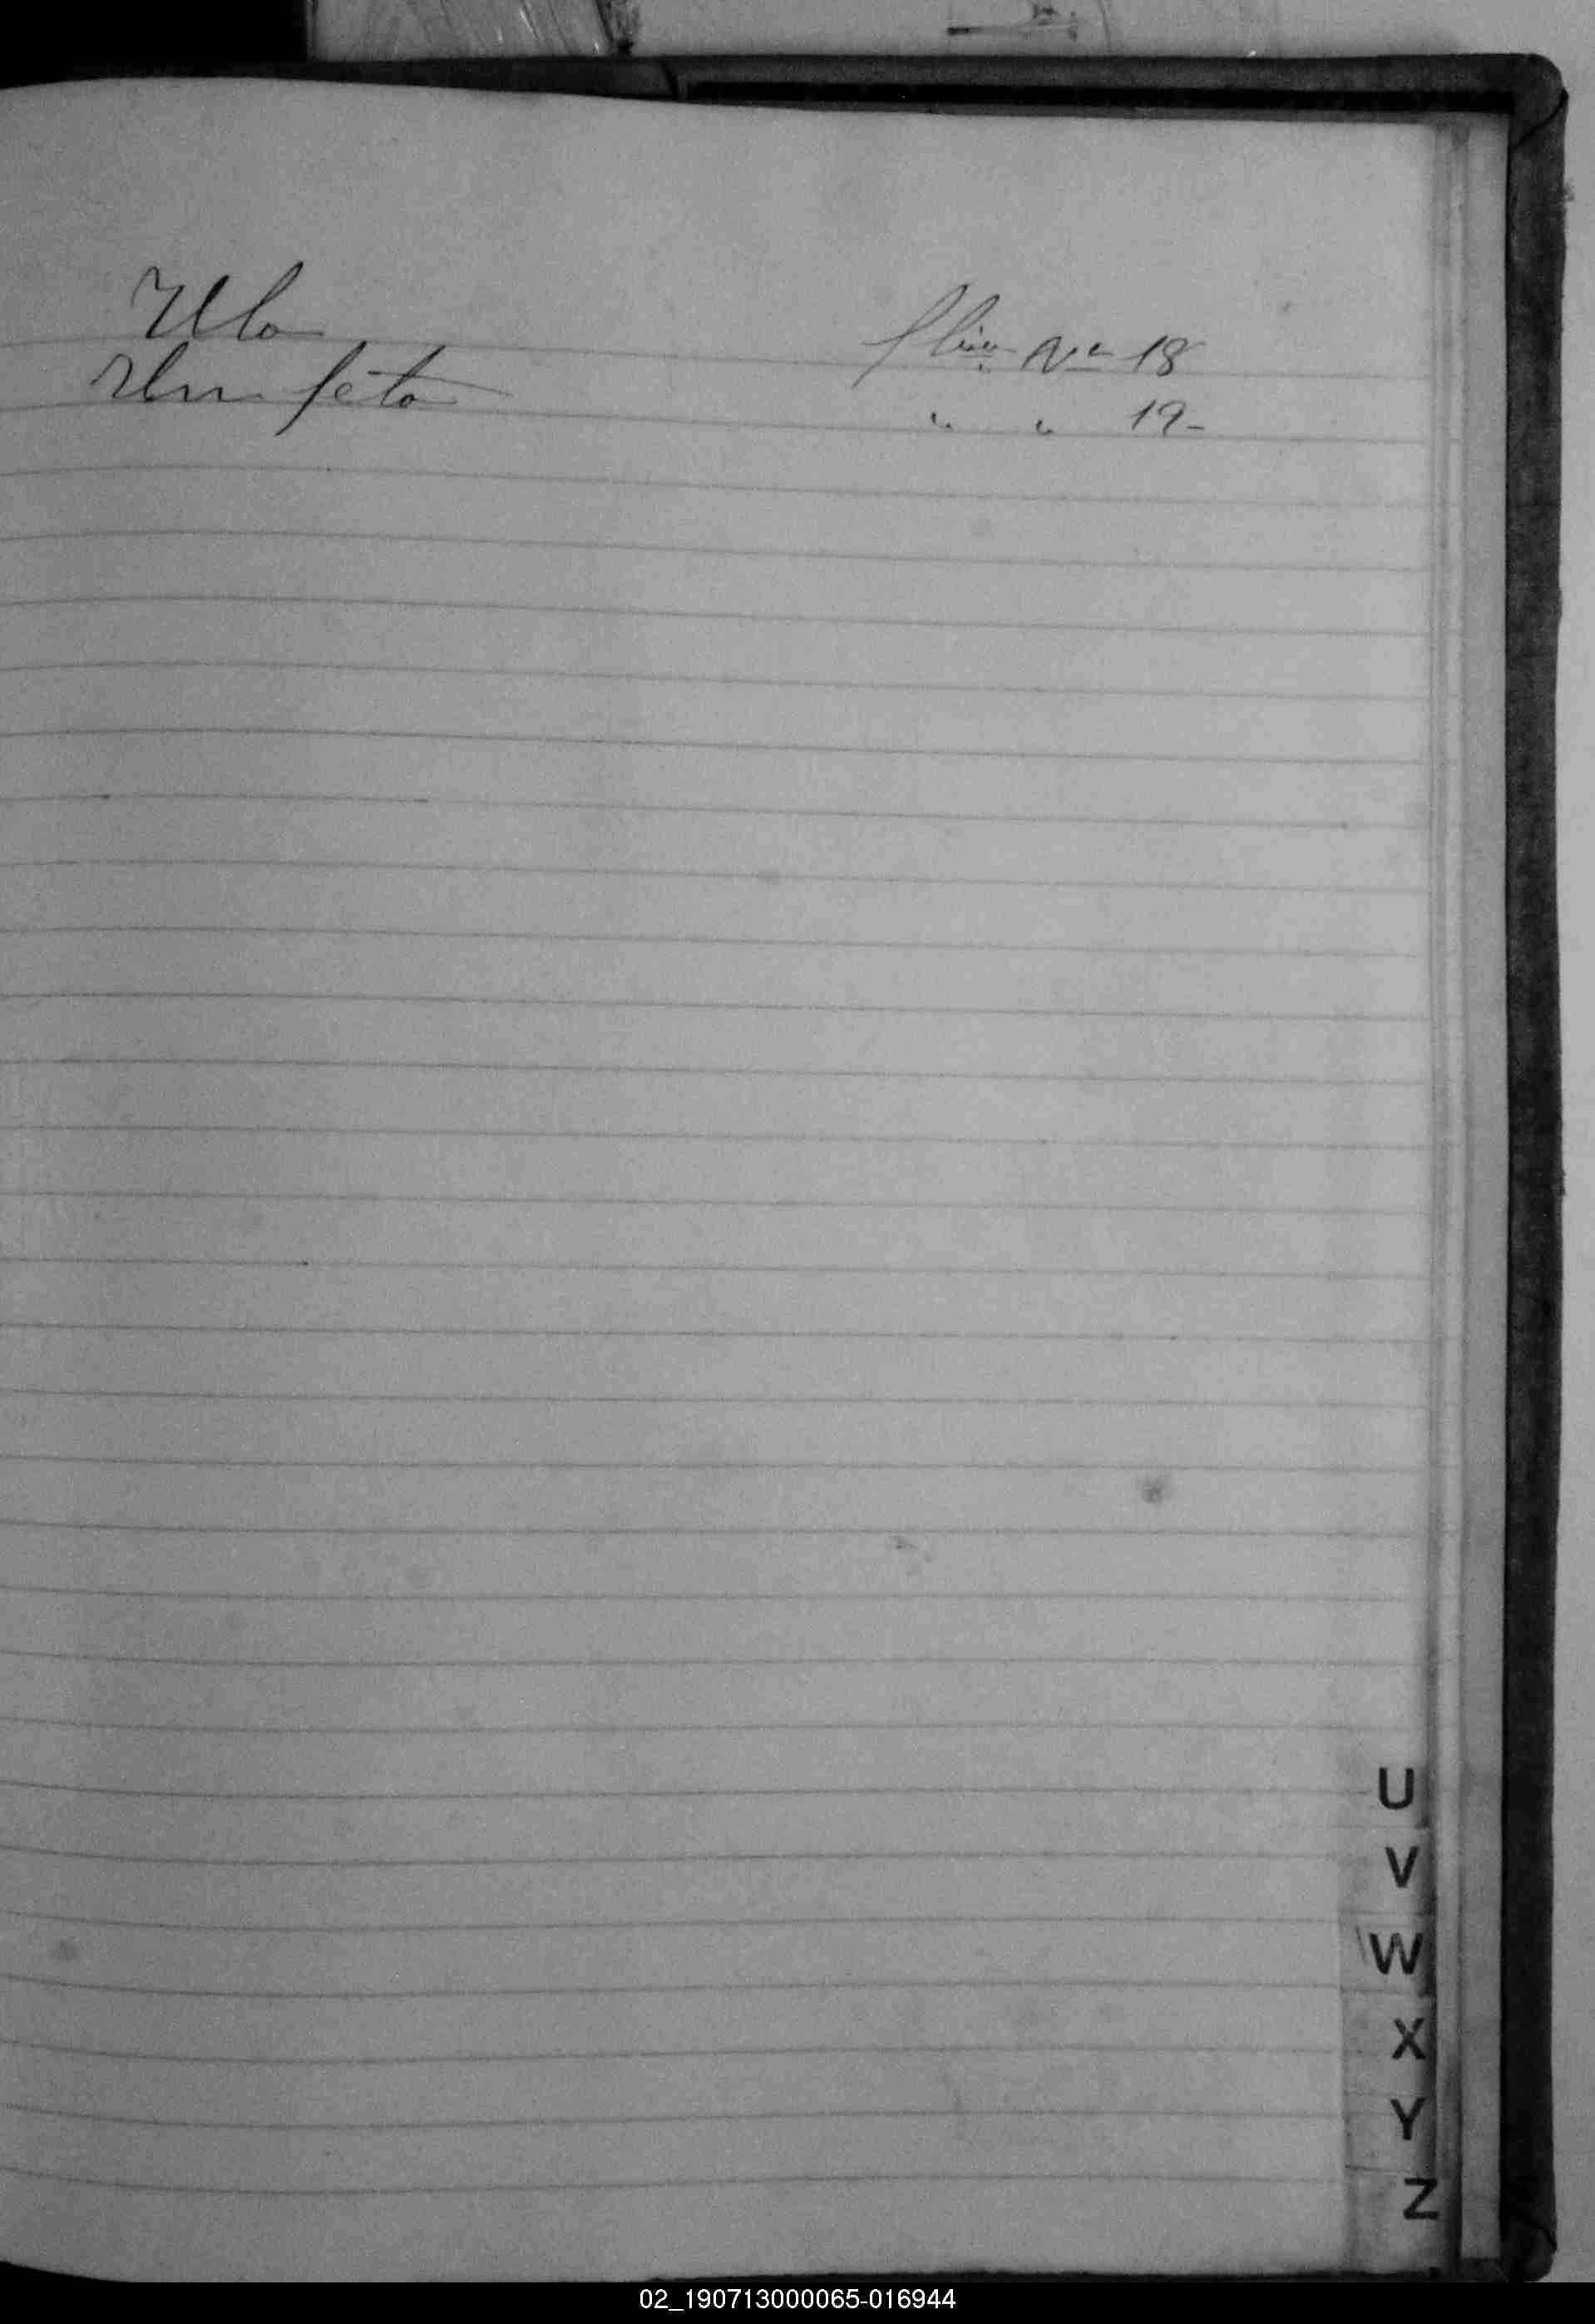 Um feto
Liv.º Nº 18
" " 19-
U
V
W
X
Y
Z
02_190713000065-016944